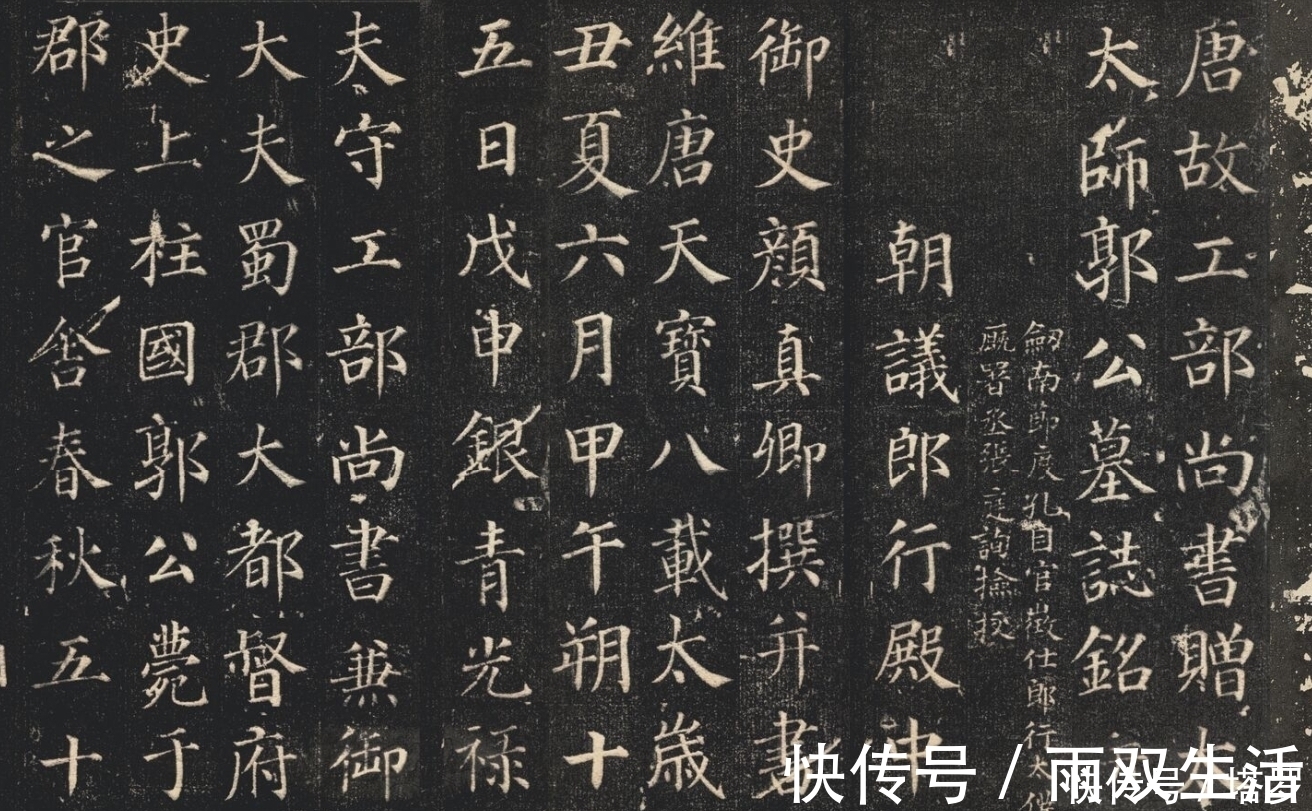 唐故工部尚書贈
太師郭公墓誌銘
劔南節度孔目官徵仕郎行太僕
厩署丞張庭詢撿挍
朝議郎行殿中
御史顏真卿撰并書
維唐天寶八載太歲
丑夏六月甲午朔十
五日戊申銀青光祿
夫守工部尚書兼御
大夫蜀郡大都督府
史上柱國郭公薨于
郡之官舍春秋五十
快传号 / 雨双生活